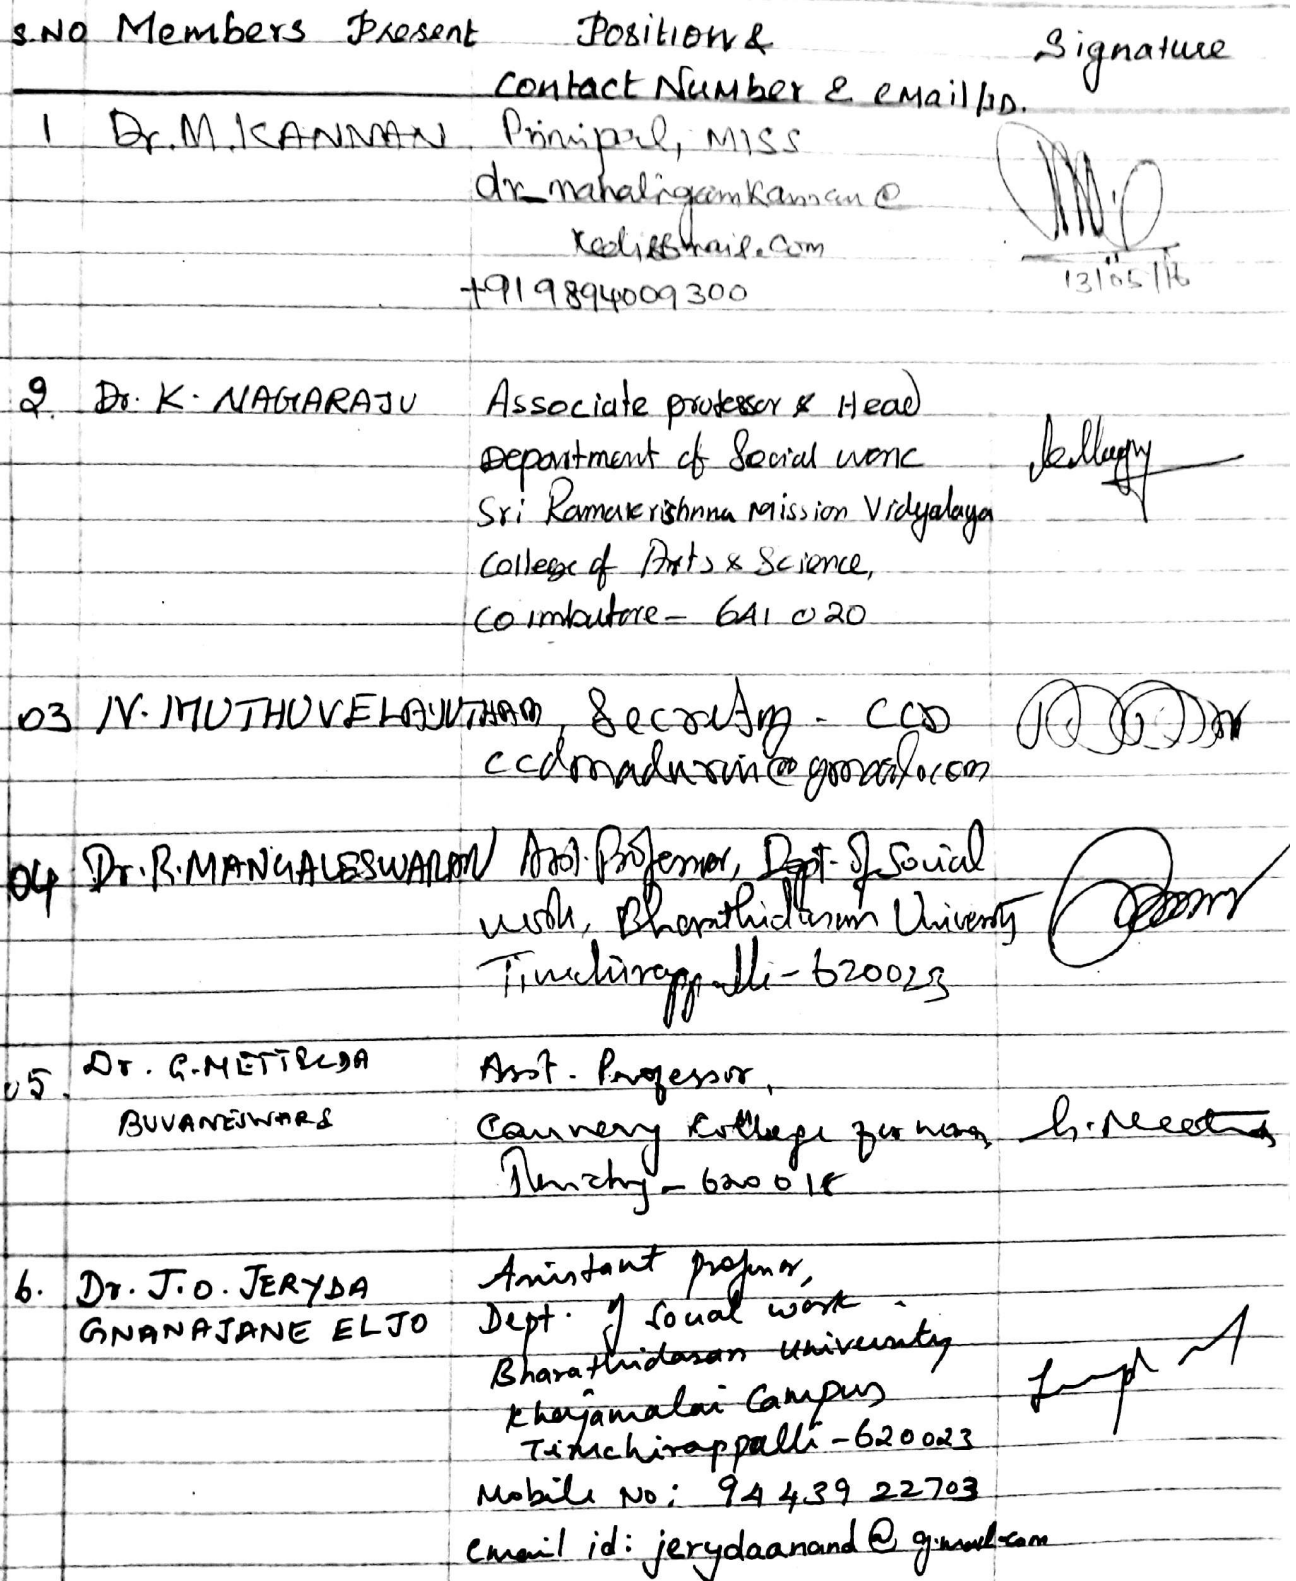 S.NO Members Present Position &
Signature
Contact Number & email/ID.
1 Dr.M.KANNAN Principal, MISS
dr_mahaligamkannan@
rediffmail.com
13/05/16
+919894009300
2. Dr. K. NAGARAJU Associate professor & Head
Department of Social work
Sri Ramakrishnna Mission Vidyalaya
College of Arts & Science,
Coimbutore - 641 020
03 N. MUTHUVELAYUTHAM, Secretary - CCD
ccdmadurai@gmail.com
04 Dr.R.MANGALESWARAN Asst. Professor, Dept. of Social
work, Bharathidasan University
Tiruchirappalli - 620023
05. Dr. G. METTILDA Asst. Professor,
BUVANESWARI Cauvery College for women, G. Mettilda
Trichy - 620018
6. Dr. J.O. JERYDA Assistant professor,
GNANAJANE ELJO Dept. of social work.
Bharathidasan University
Khajamalai Campus
Tiruchirappalli - 620023
Mobile No: 94439 22703
email id: jerydaanand@gmail.com